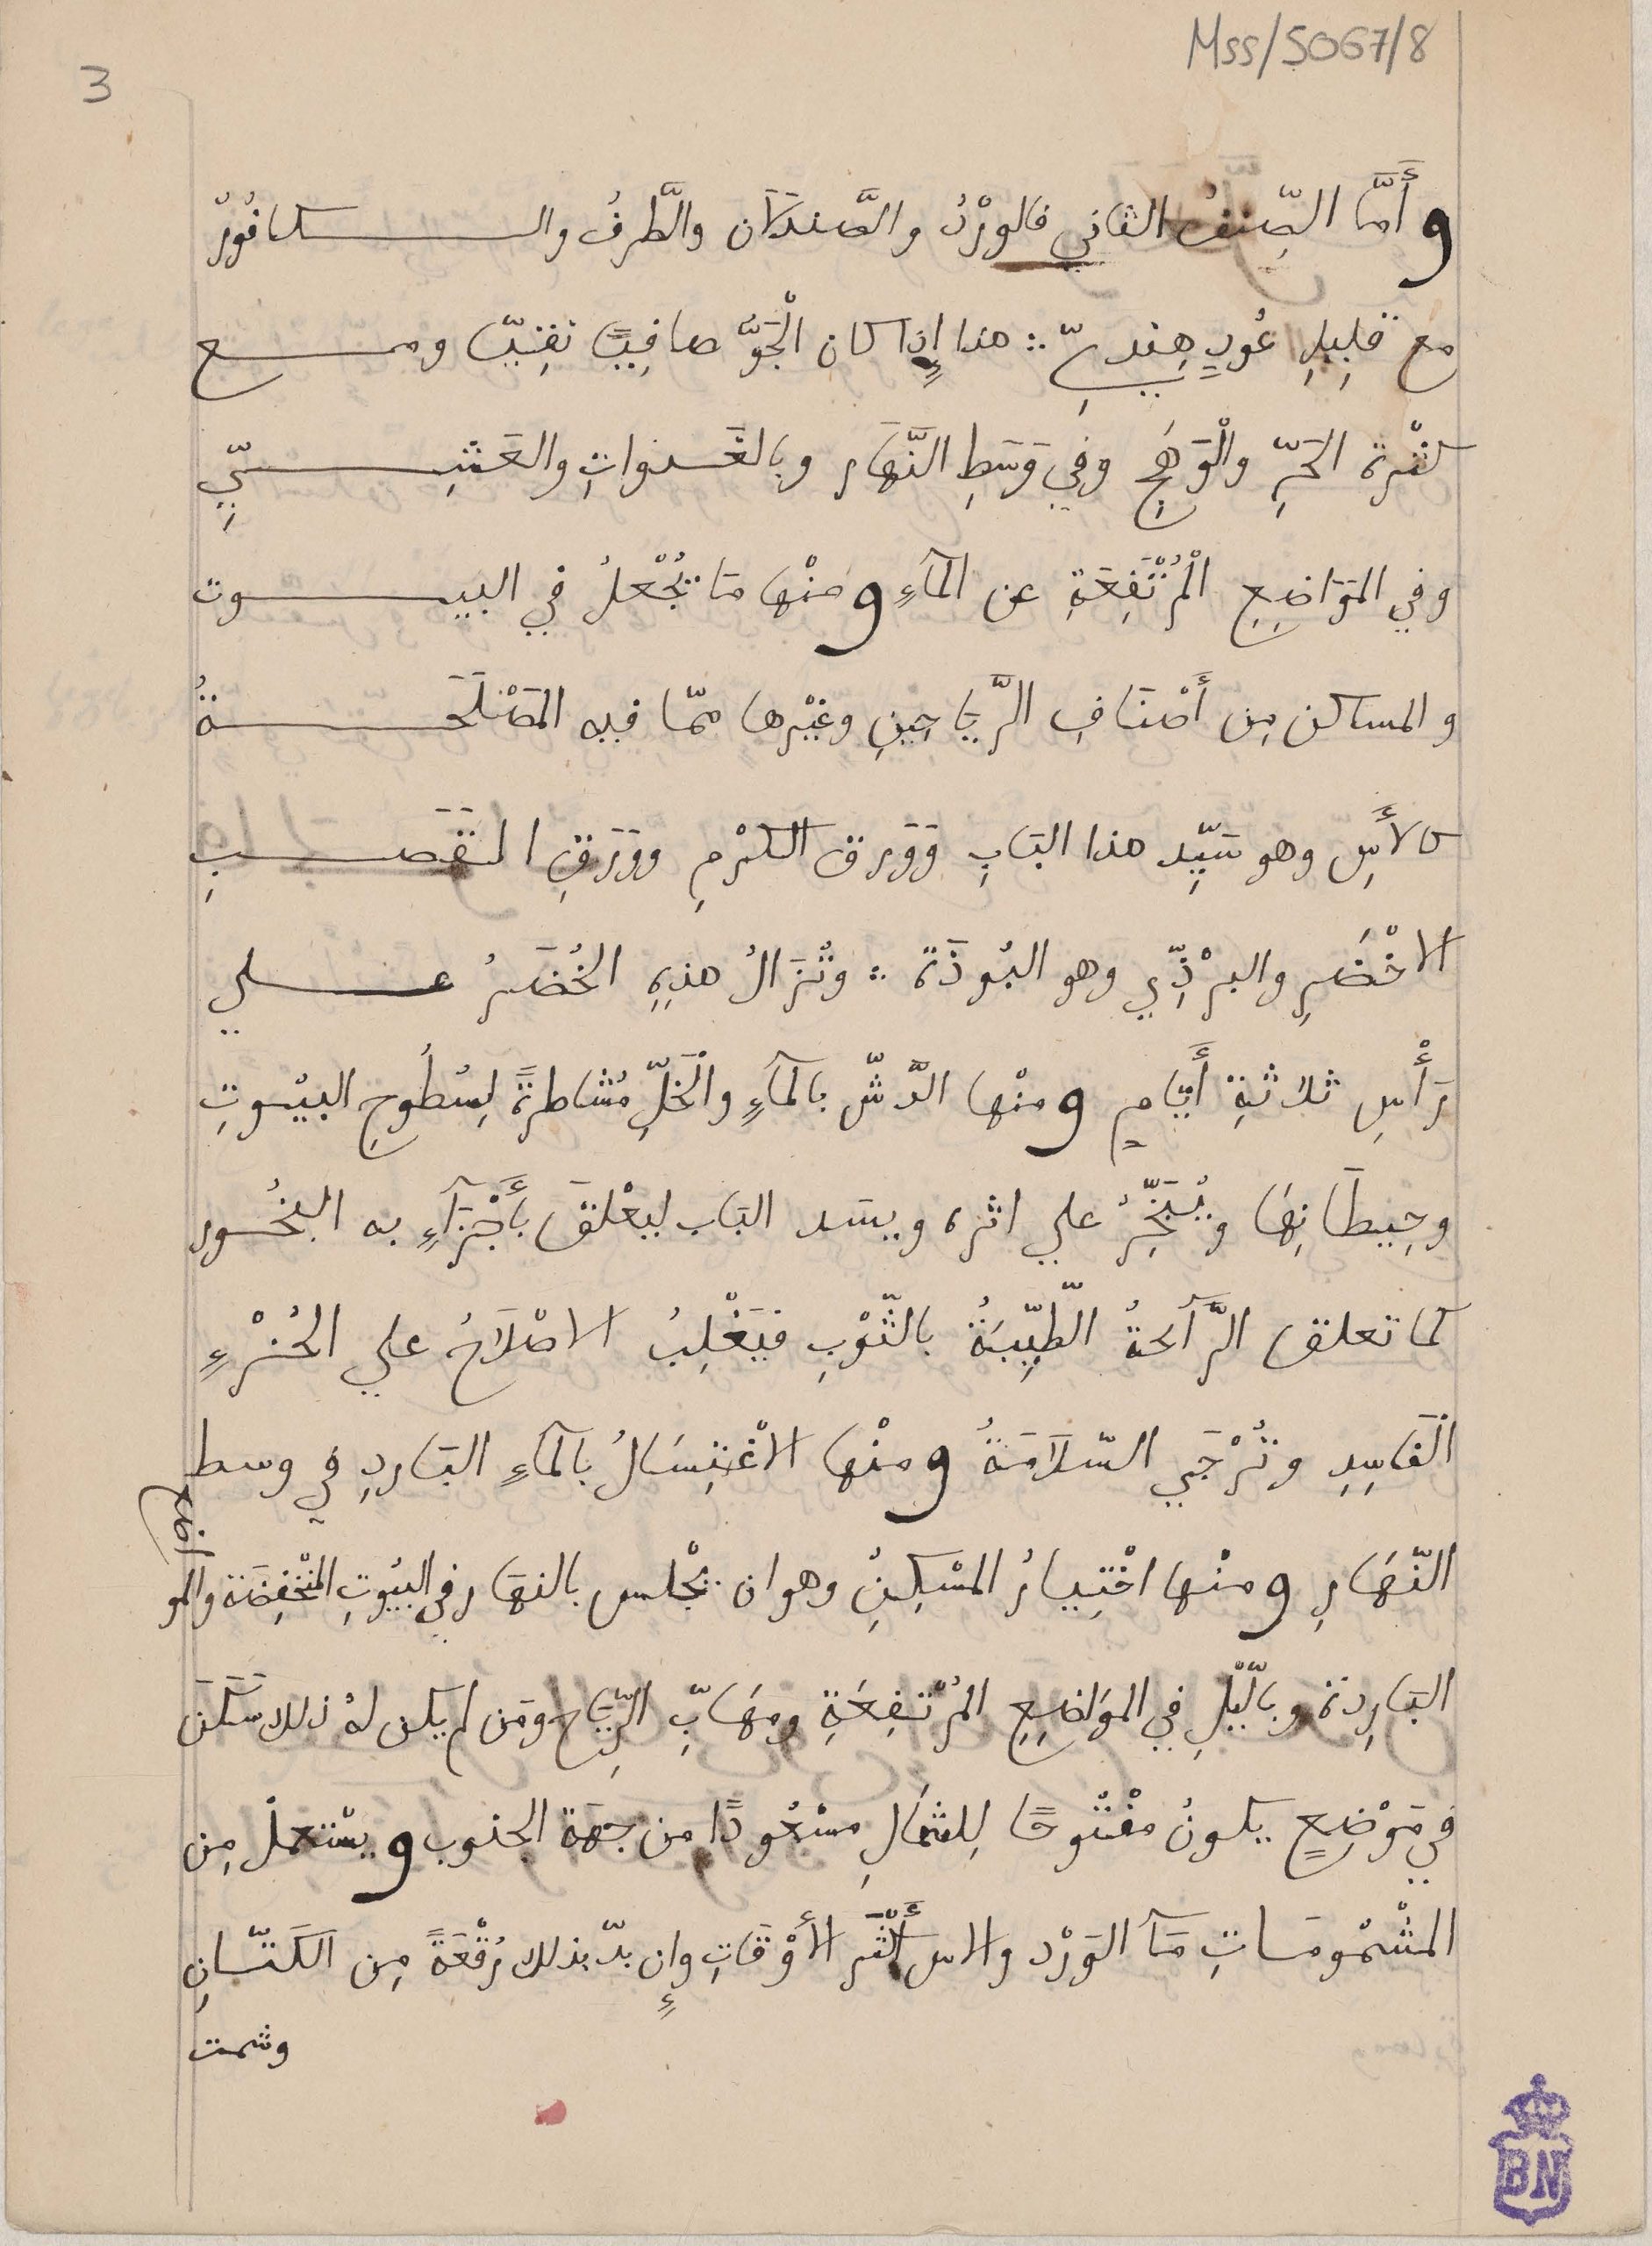 Mss/5067/8
3
وأَمَّا الصِّنفُ الثاني فالورْدُ والصَّندَلَان والطَّرفُ والكافُورُ
مع قلِيلِ عُودٍ هِندِيّ ∴ هذا إِذا كان الْجَوّ صافِيًا نقِيّا ومع
كثْرة الحَرِّ والْوَهَجِ وفي وَسَطِ النَّهَار وبالغَدواتِ والعَشِيِّ
وفي المَوَاضِعِ الْمُرْتَفِعَةِ عن المآءِ ومنْها مَا يُجْعلُ في البيوت
والمساكن مِن أَصْنَافِ الرَّيَاحِينِ وغيْرها ممّا فيه المَصْلَحَةُ
كالأَسِ وهو سَيِّد هذا البَابِ وَوَرق الكَرْمِ ووَرَقِ القَصَبِ
الاخْضَرِ والبرْذِّي وهو البُوذَة ∴ وتُزَالُ هذِهِ الخُضَرُ علي
رَأْسِ ثلاثةِ أَيَّامٍ ومنْها الرَّشّ بالمآءِ والْخَلِّ مُشاطرةً لِسُطُوحِ البيُوتِ
وحِيطَانِهَا ويُبَخِّرُ علي اثره ويسَد البَاب ليعْلقَ بأَجْزَآءِ به البخُور
كما تعلق الرَّآئحةُ الطّيِّبَةُ بالثّوْبِ فيَغْلِبُ الاصْلَاحُ علي الجُزْءِ
الْفَاسِدِ وتُرْجَي السّلَامَةُ ومنْها الاغْتِسَالُ بالمآءِ البَاردِ في وسط
النّهَارِ ومنْها اخْتِيارُ المسْكِنِ وهو ان يجْلس بالنهَار في البيُوتِ المنْخفِضَة والمواضع
البَارِدة وبالّيْلِ في الموَاضِعِ المرْتفِعَةِ ومهَابِّ الرِّيَاح ومَن لم يكن لهُ ذلك سَكَنَ
في مَوْضِعٍ يكونُ مفْتُوحًا لِلشمَالِ مسْدُودًا من جهَة الجنوب ويسْتعملُ مِن
المشْمُومَاتِ مَآ الوَرْد والاس أَكْثَر الأَوْقَاتِ وإِن بلّ بذلك رُقْعَةً مِن الكَتّانِ
وشمت
BN